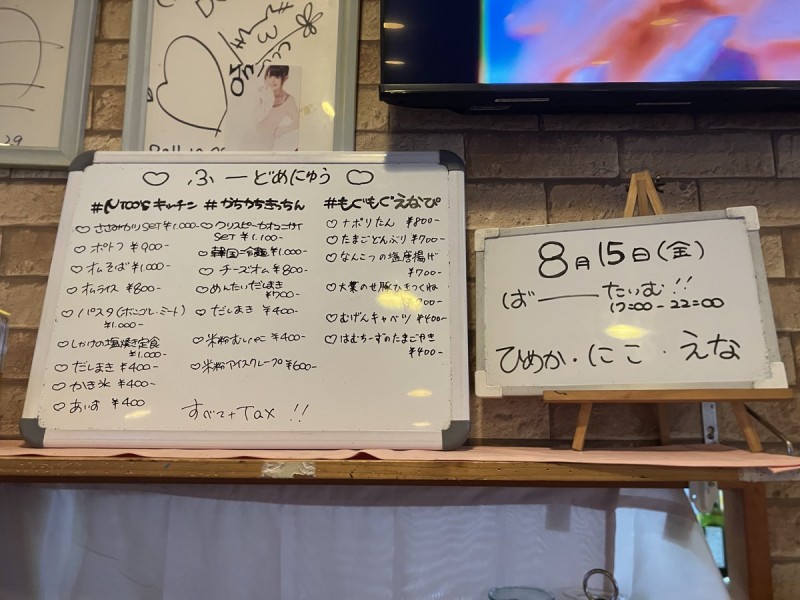 29
♡ ふーどめにゅう ♡
#NTOO'Sキッチン
♡ ささみカツSET ¥1.000-
♡ ポトフ ¥900-
♡ オムそば ¥1.000-
♡ オムライス ¥800-
♡ パスタ(ボロネーゼ・ミート)
¥1.000-
♡ しゃけの塩焼き定食
¥1.000-
♡ だしまき ¥400-
♡ かき氷 ¥400-
♡ あいす ¥400
#がちがちきっちん
SET ¥1.100-
♡ 韓国冷麺 ¥1.000-
♡ チーズオム ¥800-
♡ めんたいだしまき
¥700-
♡ だしまき ¥400-
♡ 米粉 ¥400-
♡ 米粉アイスクレープ ¥600-
すべて+Tax !!
#もぐもぐえなぴ
♡ ナポリたん ¥800-
♡ たまごどんぶり ¥700-
♡ なんこつの塩唐揚げ
¥700-
♡ 大葉のせ豚ひきつくね
♡ むげんキャベツ ¥400-
♡ はむちーずのたまごやき
¥400-
8月15日(金)
ばーたいむ!!
17:00-22:00
ひめか・にこ・えな